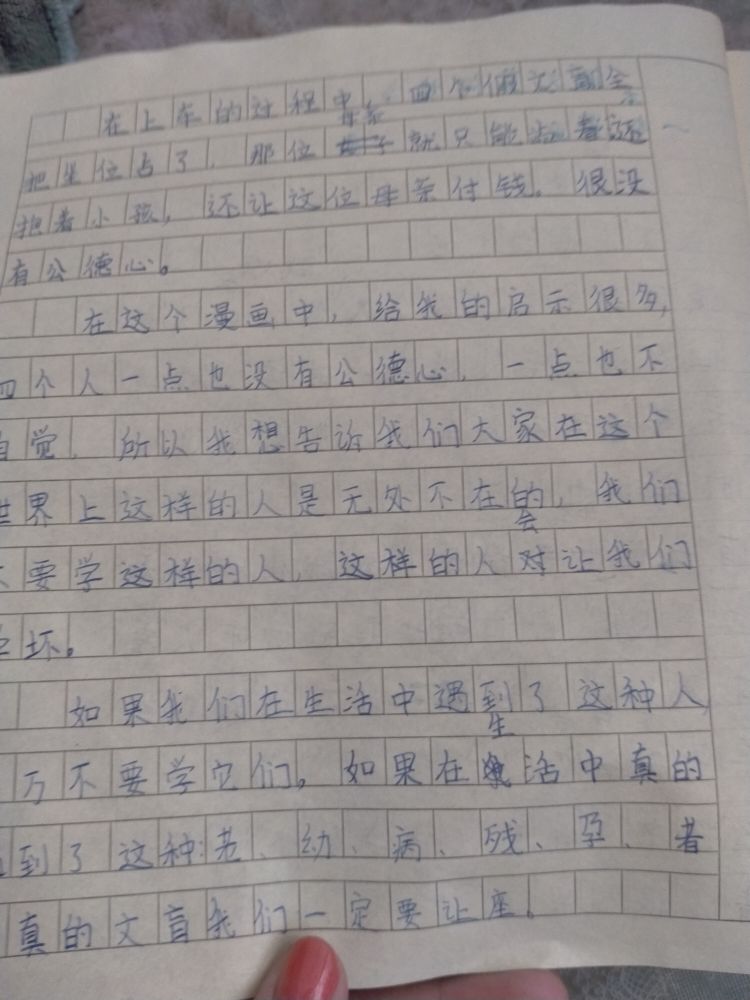 在上车的过程中，四个 全
把坐位占了，那位母亲就只能站着还
抱着小孩，还让这位母亲付钱，很没
有公德心。
在这个漫画中，给我的启示很多，
四个人一点也没有公德心，一点也不
自觉，所以我想告诉我们大家在这个
世界上这样的人是无处不在的，我们
要学这样的人，这样的人会让我们
坏。
如果我们在生活中遇到了这种人，
万不要学它们。如果在生活中真的
到了这种老、幼、病、残、孕、者
真的文盲我们一定要让座。